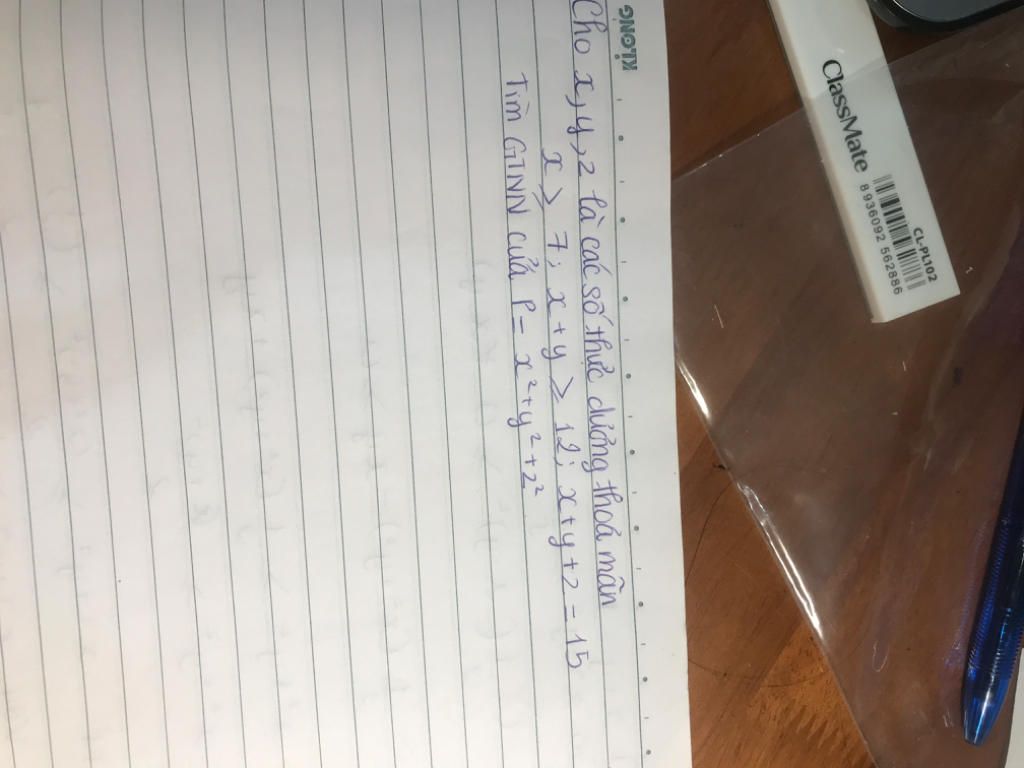 KLONG
Cho x, y, z là các số thực dương thoả mãn
x ≥ 7; x + y ≥ 12; x + y + z = 15
Tìm GTNN của P = x² + y² + z²
ClassMate
CL-PL102
8936092 562886